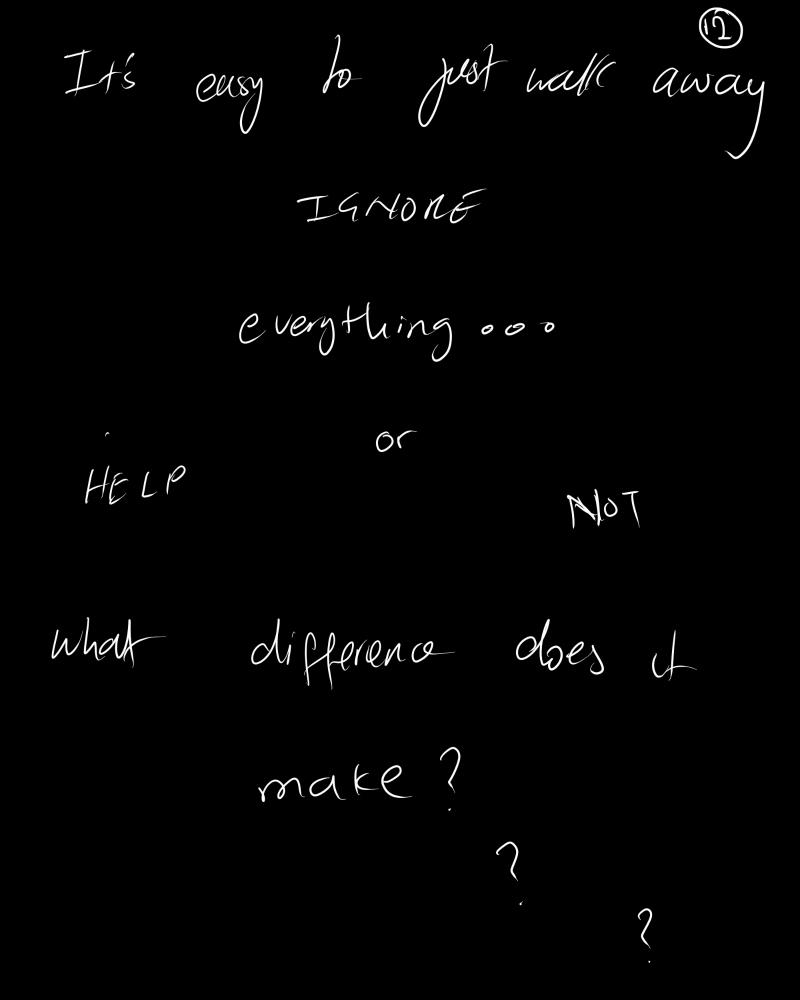 12
It's easy to just walk away
IGNORE
everything...
or
HELP NOT
what difference does it
make?
?
?